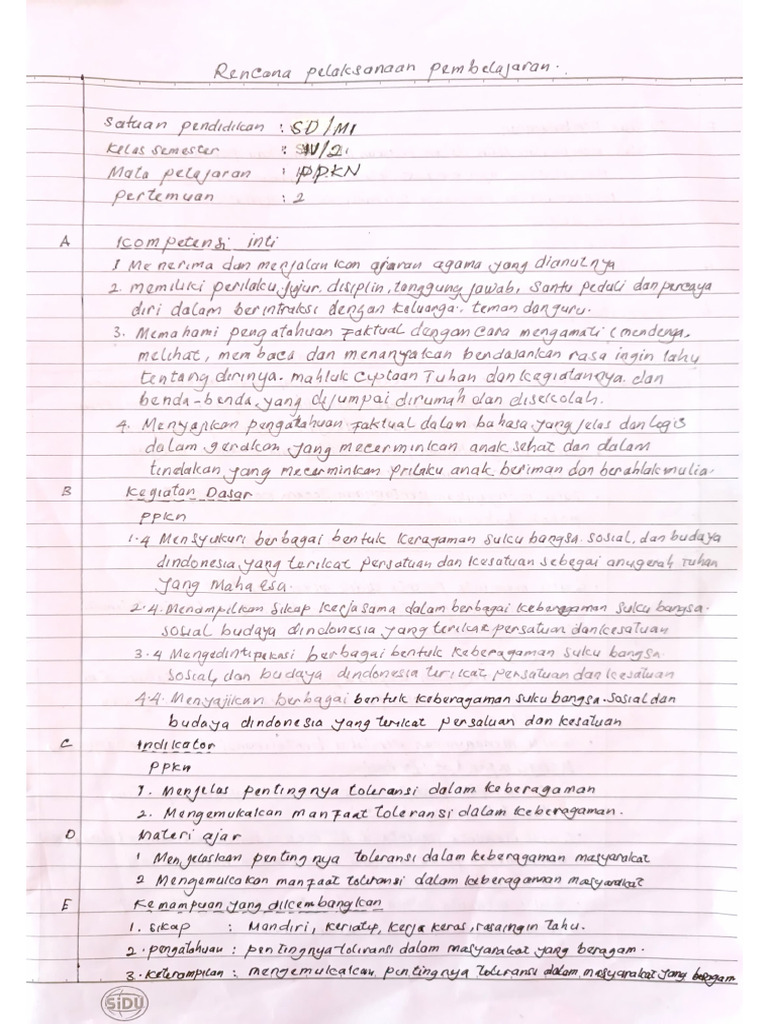 Rencana pelaksanaan pembelajaran.
Satuan pendidikan : SD/MI
Kelas semester : /2
Mata pelajaran : PPKN
Pertemuan : 2
A Kompetensi inti
1 Menerima dan menjalankan ajaran agama yang dianutnya
2. memiliki perilaku, jujur, disiplin, tanggung jawab, santu peduli dan percaya
diri dalam berintraksi dengan keluarga. teman dan guru.
3. Memahami pengatahuan faktual dengan cara mengamati (mendenga,
melihat, membaca dan menanyakan bendasarkan rasa ingin tahu
tentang dirinya. mahluk ciptaan Tuhan dan kegiatannya. dan
benda-benda, yang dijumpai dirumah dan disekolah.
4. Menyajikan pengatahuan faktual dalam bahasa, yang jelas dan logis
dalam gerakan yang mecerminkan anak sehat dan dalam
tindakan yang mecerminkan prilaku anak beriman dan berahlak mulia.
B Kegiatan Dasar
PPkn
1.4 Mensyukuri berbagai bentuk keragaman suku bangsa. sosial, dan budaya
dindonesia, yang terikat persatuan dan kesatuan sebegai anugerah Tuhan
yang Maha esa.
2.4. Menampilkan sikap kerja sama dalam berbagai keberagaman suku bangsa.
sosial budaya dindonesia, yang terikat persatuan dan kesatuan
3.4 Mengedintipekasi berbagai bentuk keberagaman suku bangsa.
sosial, dan budaya dindonesia terikat persatuan dan kesatuan
4.4. Menyajikan berbagai bentuk keberagaman suku bangsa. sosial dan
budaya dindonesia yang terikat persatuan dan kesatuan
C Indikator
PPkn
1. Menjelas pentingnya toleransi dalam keberagaman
2. Mengemukakan manfaat toleransi dalam keberagaman.
D Materi ajar
1 Menjelaskan pentingnya toleransi dalam keberagaman masyarakat
2 Mengemukakan manfaat toleransi dalam keberagaman masyarakat
E Kemampuan yang dikembangkan
1. sikap : Mandiri, keriatip, kerja keras, rasa ingin tahu.
2. pengatahuan : pentingnya toliransi dalam masyarakat yang beragam.
3. keterampilan : mengemukakan pentingnya toleransi dalam masyarakat yang beragam
SiDU